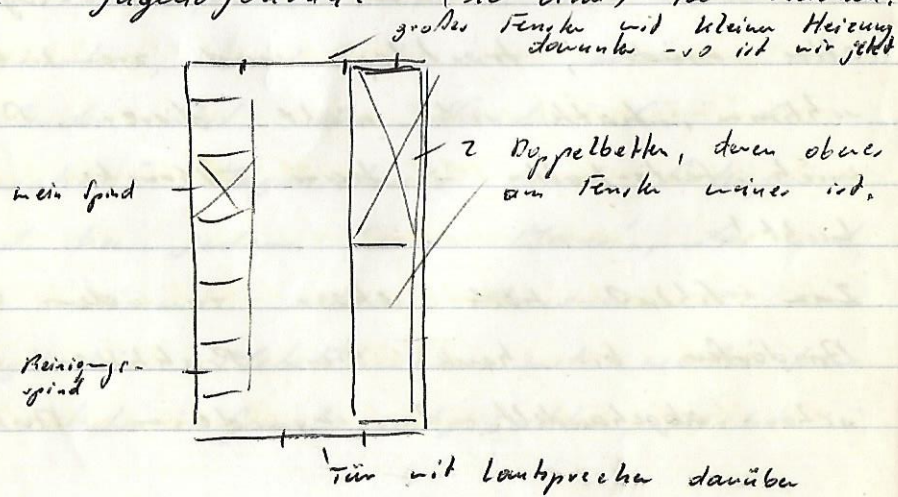 großes Fenster mit kleiner Heizung
darunter - so ist mir jetzt
2 Doppelbetten, deren oberes
am Fenster meines ist.
mein Spind
Reinigungs-
spind
Tür mit Lautsprecher darüber